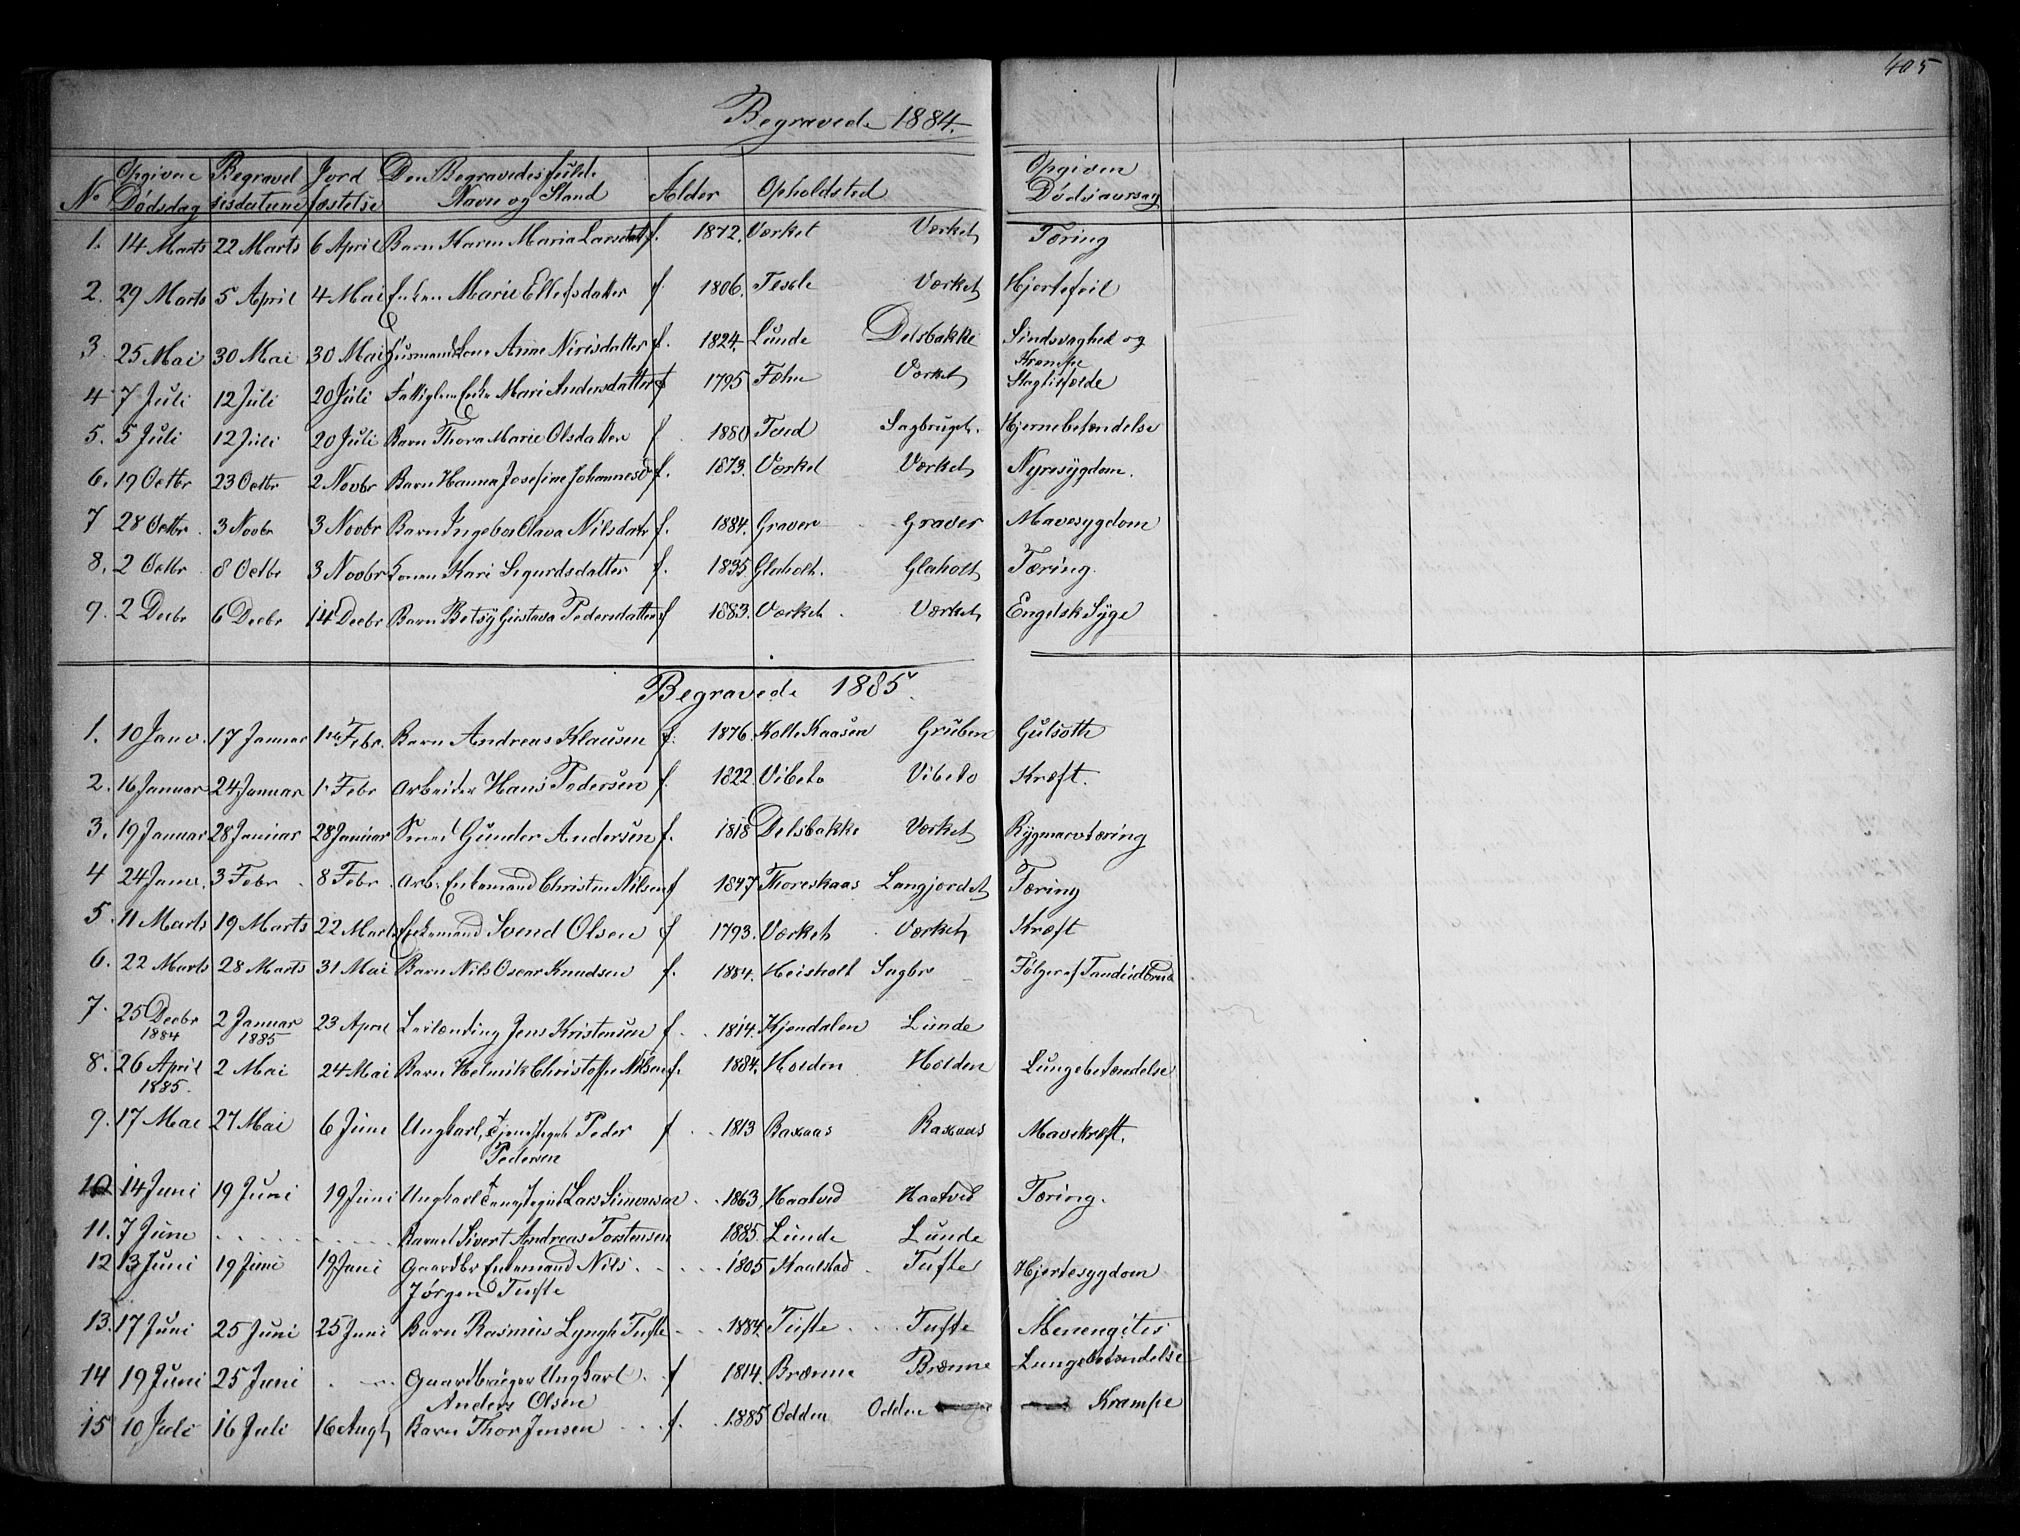 405
Begravede 1884.
No Opgiven Dødsdag Begravelsesdatum Jordfæstelse Den Begravedes fulde Navn og Stand Alder Opholdsted Opgiven Dødsaarsag
1. 14 Marts 22 Marts 6 April Barn Karen Maria Larsdatt f. 1872. Værket Værket Tæring
2. 29 Marts 5 April 4 Mai Enken Marie Ellefsdatter f. 1806. Værket Hjertefeil
3. 25 Mai 30 Mai 30 Mai Husmandskone Anne Nirisdatter f. 1824. Lunde Delsbakke Sindsvaghed og Krampe
4 7 Juli 12 Juli 20 Juli Fattiglem Enke Mari Andersdatter f 1795 Værket
5. 5 Juli 12 Juli 20 Juli Barn Thora Marie Olsdatter f. 1880 Tved Sagbruget. Hjernebetændelse
6. 19 Octbr 23 Octbr 2 Novbr Barn Hanna Josefine Johannesd f. 1873. Værket Værket Nyresygdom.
7 28 Octbr. 3 Novbr 3 Novbr Barn Ingebor Olava Nilsdatr f. 1884. Graver Graver Mavesygdom
8. 2 Octbr 8 Octbr 3 Novbr Konen Kari Sigurdsdatter f. 1835. Glaholt. Glaholt Tæring.
9. 2 Decbr 6 Decbr 14 Decbr Barn Betsy Gustava Pedersdatter f 1883. Værket. Værket Engelsk Syge
Begravede 1885.
1. 10 Janv. 17 Januar 1ste Febr. Barn Andreas Klausen f. 1876. Kolle Kaasen Gruben Gulsott
2. 16 Januar 24 Januar 1. Febr Arbeider Hans Pedersen f. 1822 Vibeto Vibeto Kræft.
3. 19 Januar 28 Januar 28 Januar Smed Gunder Andersen f. 1818 Delsbakke Værket Rygmarvtæring
4 24 Janv. 3 Febr. 8 Febr. Arb. Enkemand Christen Nilsen f 1847 Thoreskaas Langjordet Tæring
5. 11 Marts 19 Marts 22 Marts Enkemand Svend Olsen f 1793. Værket Værket Kræft
6. 22 Marts 28 Marts 31 Mai Barn Nils Oscar Knudsen f. 1884. Heisholt Sagbr Følger af
7. 25 Decbr 1884 2 Januar 1885 23 April Leilænding Jens Kristensen f. 1814. Kjendalen Lunde
8. 26 April 1885. 2 Mai 24 Mai Barn Helmik Christoffer Nilsen f. 1884. Holden Holden Lungebetændelse
9. 17 Mai 27 Mai 6 Juni Ungkarl, Tjenestegut Peder Pedersen f. 1813 Raxaas Raxaas Mavekræft.
10 14 Juni 19 Juni 19 Juni Ungkarl Tjenestegut Lars Simonsen 1863. Haatvid Haatvid Tæring.
11. 7 Juni Barnet Sivert Andreas Torstensen 1885. Lunde Lunde
12 13 Juni 19 Juni 19 Juni Gaardbr Enkemand Nils Jørgen Tufte 1805 Kaalstad Tufte Hjertesygdom
13. 17 Juni 25 Juni 25 Juni Barn Rasmus Lyngh Tufte 1884. Tufte Tufte Menengitis
14 19 Juni 25 Juni Gaardbruger Ungkarl Anders Olsen f 1814. Brænne Brænne Lungebetændelse
15 10 Juli 16 Juli 16 Augt Barn Thor Jensen f. 1885 Odden Odden Krampe